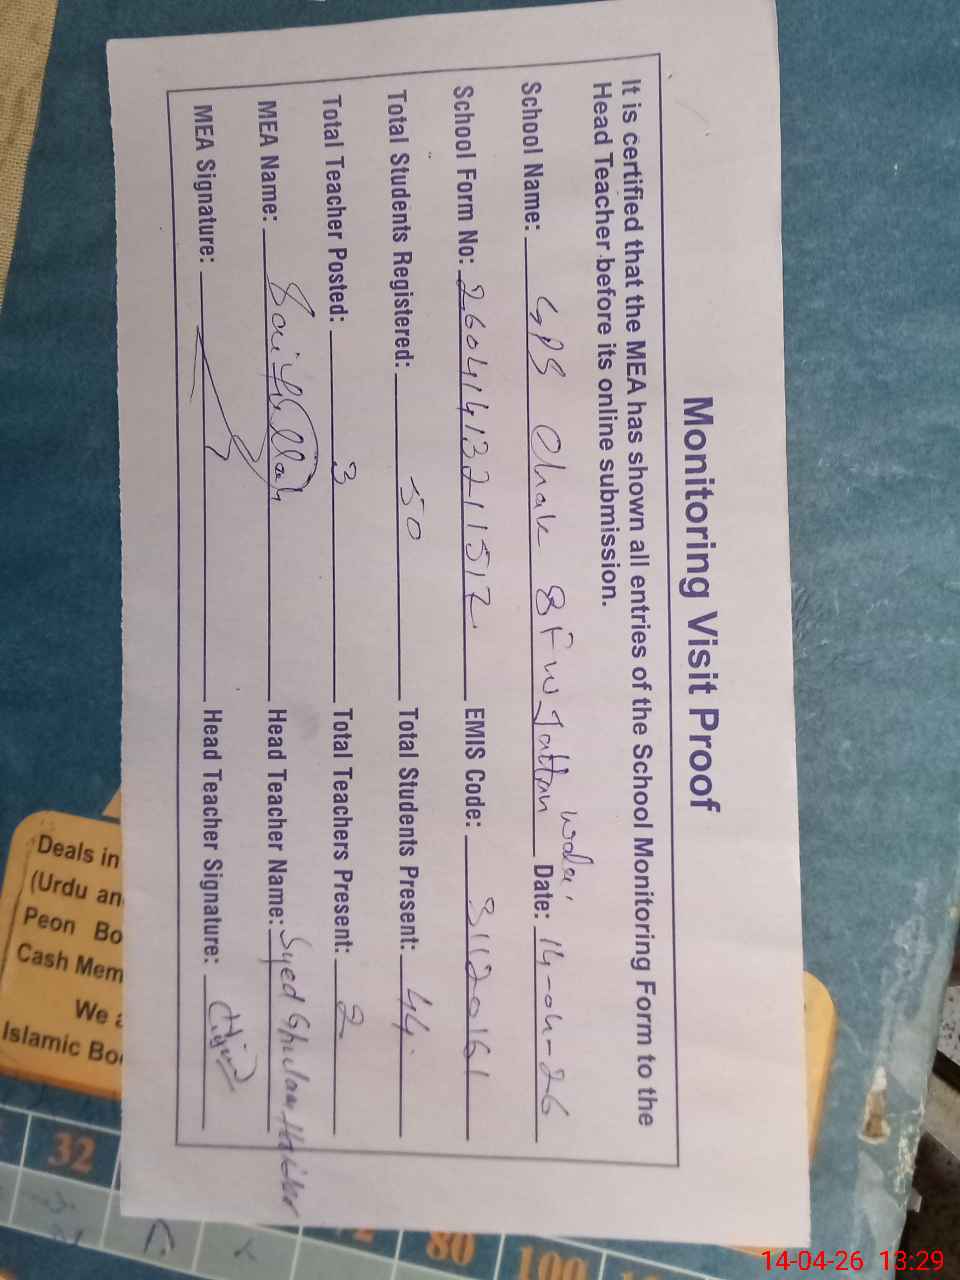 Monitoring Visit Proof
It is certified that the MEA has shown all entries of the School Monitoring Form to the
Head Teacher before its online submission.
School Name: GPS Chak 8 F w Jattan wala Date: 14-04-26
School Form No: 26041413211512 EMIS Code: 31120161
Total Students Registered: 50 Total Students Present: 44
Total Teacher Posted: 3 Total Teachers Present: 2
MEA Name: Saifullah Head Teacher Name: Syed Ghulam Haider
MEA Signature: Head Teacher Signature:
Deals in
(Urdu an
Peon Bo
Cash Mem
We a
Islamic Bo
32
80
100
14-04-26 13:29